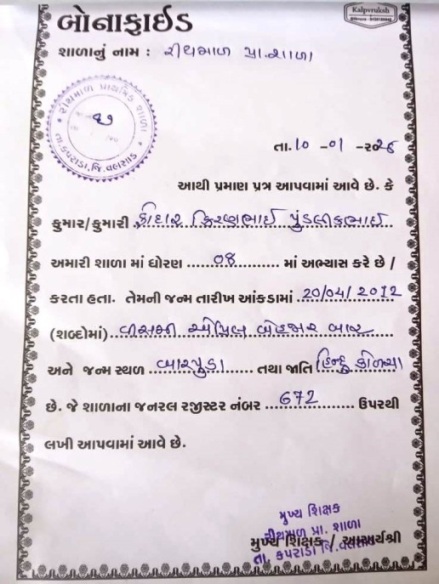 બોનાફાઈડ
Kalpvruksh
શાળાનું નામ : રીયમાળ પ્રા.શાળા
રીયમાળ પ્રાથમિક શાળા
તા.કપરાડા, જિ.વલસાડ
તા.10 -01 -૨૦26
આથી પ્રમાણ પત્ર આપવામાં આવે છે. કે
કુમાર/કુમારી કિરણભાઈ પુંડલીકભાઈ
અમારી શાળા માં ધોરણ ........08........ માં અભ્યાસ કરે છે /
કરતા હતા. તેમની જન્મ તારીખ આંકડામાં 20/04/2012
(શબ્દોમાં) વીસમી એપ્રિલ બેહજાર બાર
અને જન્મ સ્થળ બારપુડા તથા જાતિ હિન્દુ
છે. જે શાળાના જનરલ રજીસ્ટર નંબર ........672........ ઉપરથી
લખી આપવામાં આવે છે.
મુખ્ય શિક્ષક
રીયમાળ પ્રા. શાળા
મુખ્ય શિક્ષક / આચાર્યશ્રી
તા. કપરાડા જિ.વલસાડ